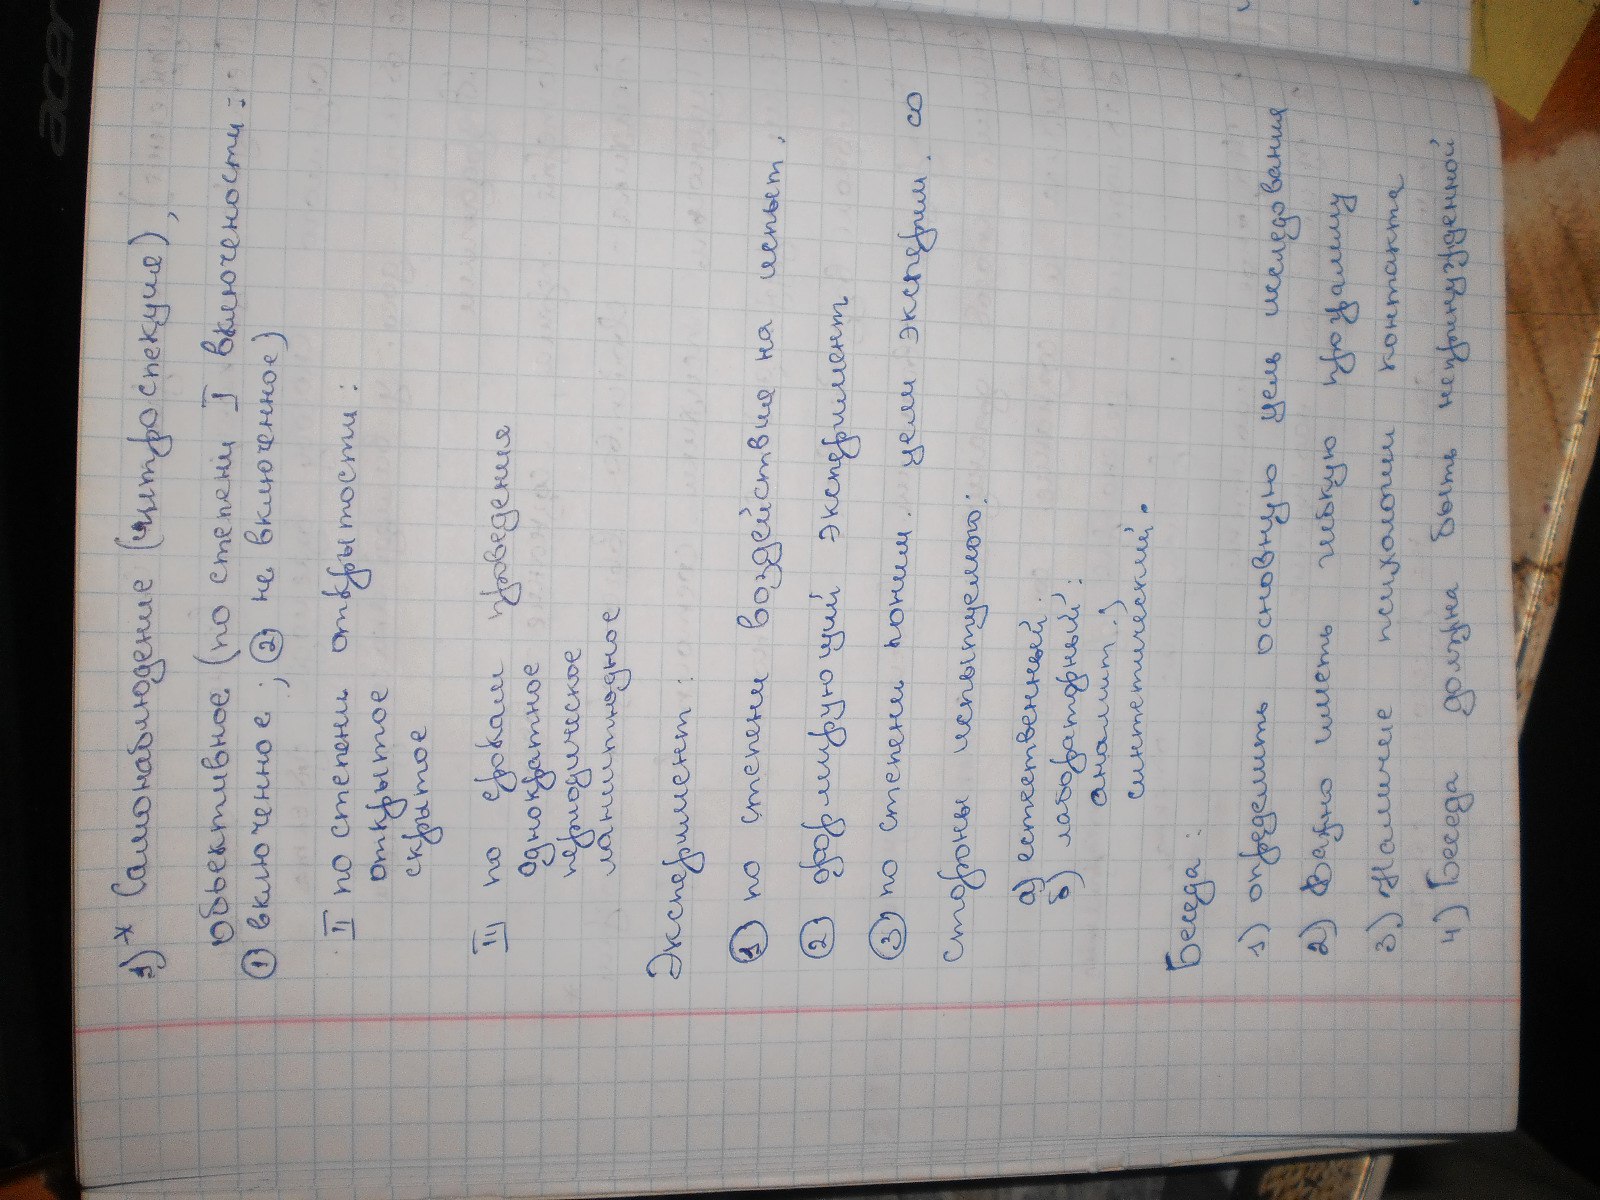 acer
1)* Самонаблюдение (интроспекция),
Объективное (по степени I включености:
① включенное; ② не включенное)
II по степени открытости:
открытое
скрытое
III по срокам проведения
однократное
периодическое
лонгитюдное
Эксперимент:
① по степени воздействия на испыт.
② формирующий эксперимент
③ по степени поним. цели эксперим. со
стороны испытуемого:
а) естественный:
б) лабораторный:
аналит.;
синтетический.
Беседа:
1) определить основную цель исследования
2) Важно иметь гибкую программу
3) Наличие психологии контакта
4) Беседа должна быть непринужденной